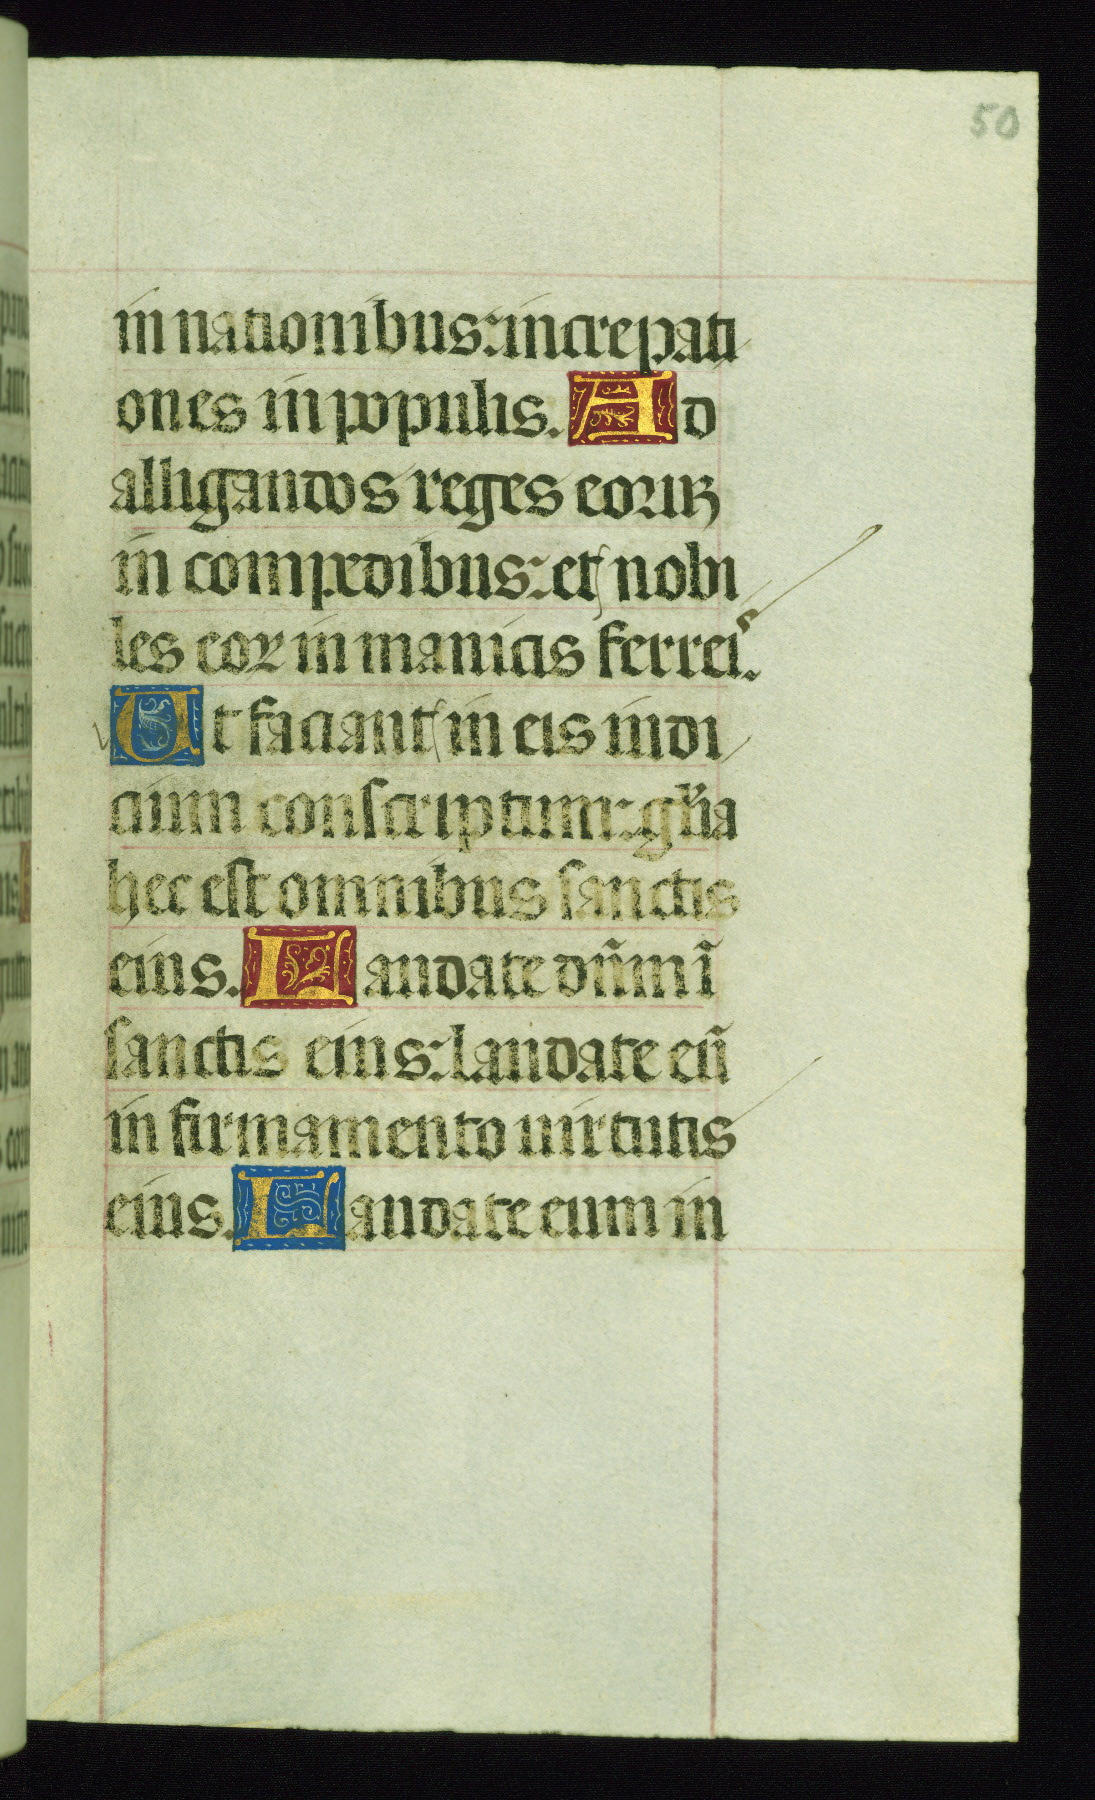 50
in nationibus: increpati
ones in populis. Ad
alligandos reges eoruꝝ
in compedibus: et nobi
les eoꝝ in manicis ferreis.
Ut faciant in eis iudi
cium conscriptum: gl̃ia
hec est omnibus sanctis
eius. Laudate dñm ĩ
sanctis eius: laudate eũ
in firmamento uirtutis
eius. Laudate eum in